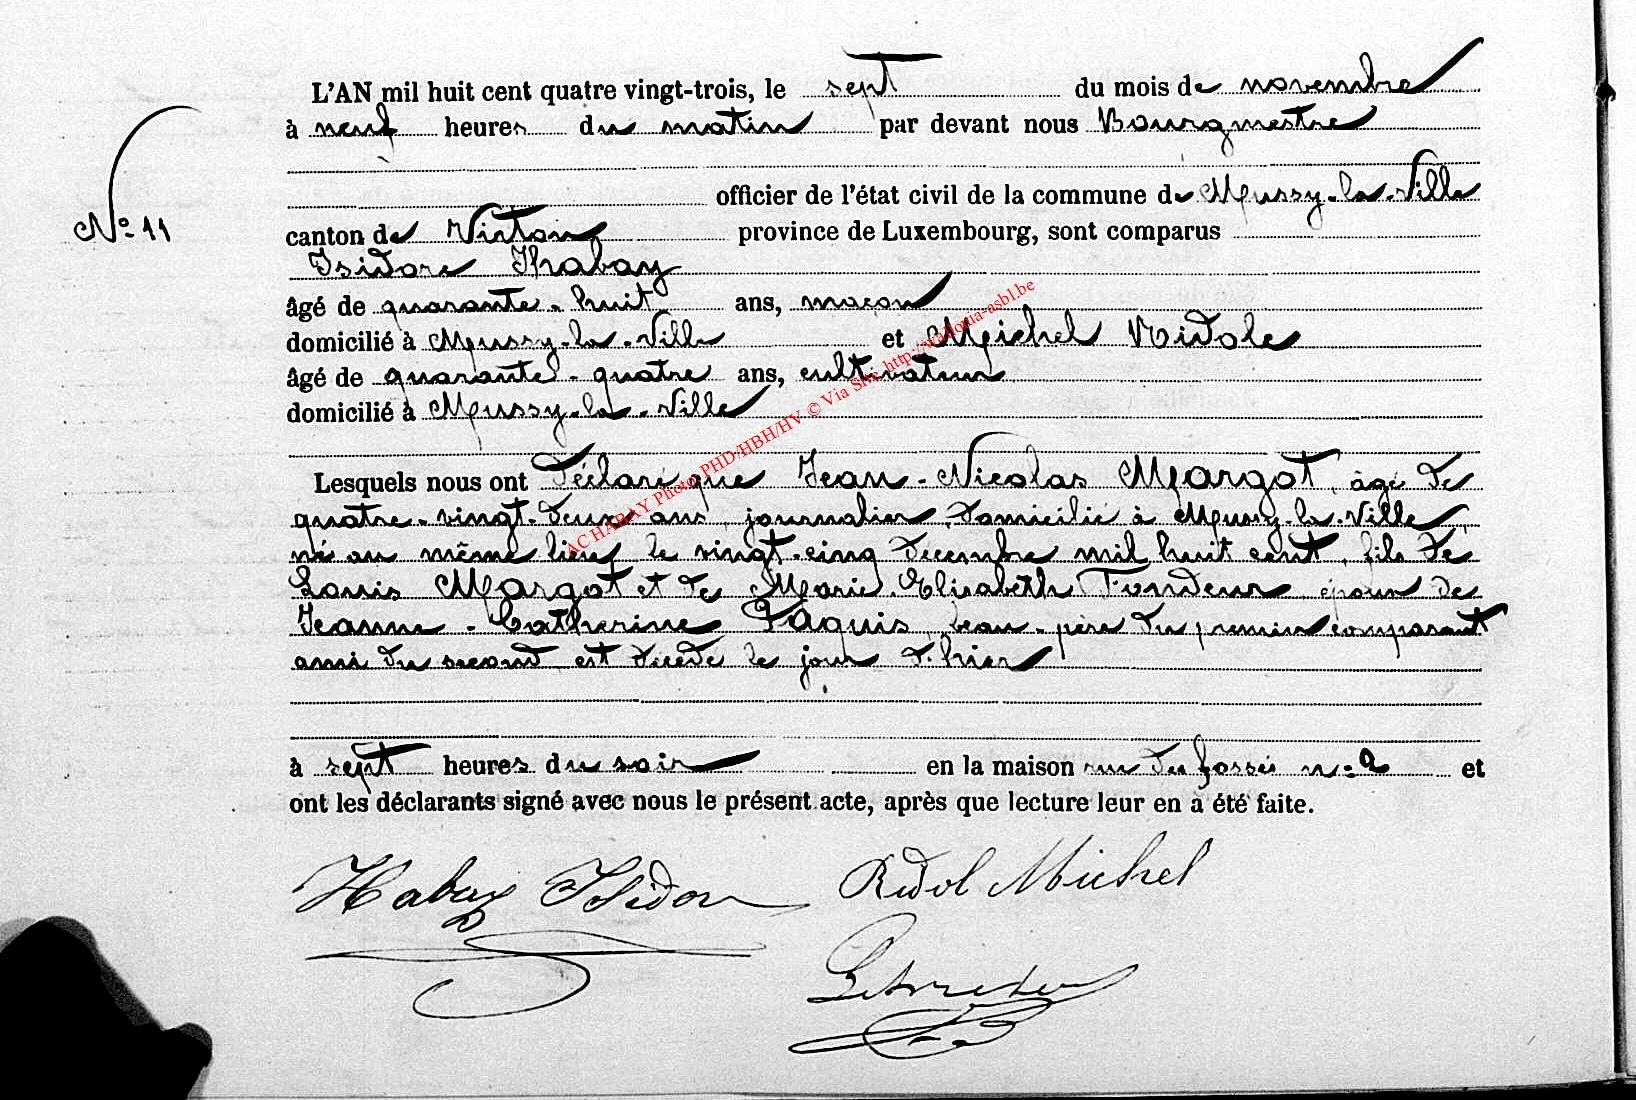 L'AN mil huit cent quatre vingt-trois, le sept du mois de novembre
à neuf heures du matin par devant nous Bourgmestre
officier de l'état civil de la commune de Mussy-la-Ville
N° 11
canton de Virton province de Luxembourg, sont comparus
Isidore Habay
âgé de quarante-huit ans, maçon
domicilié à Mussy-la-Ville et Michel Ridole
âgé de quarante-quatre ans, cultivateur
domicilié à Mussy-la-Ville
Lesquels nous ont déclaré que Jean-Nicolas Margot, âgé de
quatre-vingt-deux ans, journalier, domicilié à Mussy-la-Ville,
né au même lieu, le vingt-cinq décembre mil huit cent, fils de
Louis Margot et de Marie Elisabeth Fondeur, époux de
Jeanne-Catherine Paquis, beau-père du premier comparant
ami du second est décédé le jour d'hier
à sept heures du soir en la maison rue du fossés n° 2 et
ont les déclarants signé avec nous le présent acte, après que lecture leur en a été faite.
Habay Isidor Ridol Michel
AC HABAY Photos PHD/HBH/HV © Via Site http://wallonia-asbl.be